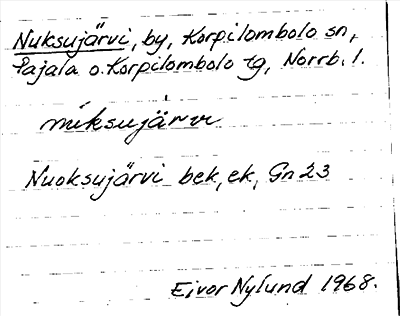 Nuksujärvi, by, Korpilombolo sn,
Pajala o. Korpilombolo tg, Norrb. l.
nuksujärvi
Nuoksujärvi bek, ek, Gn 23
Eivor Nylund 1968.